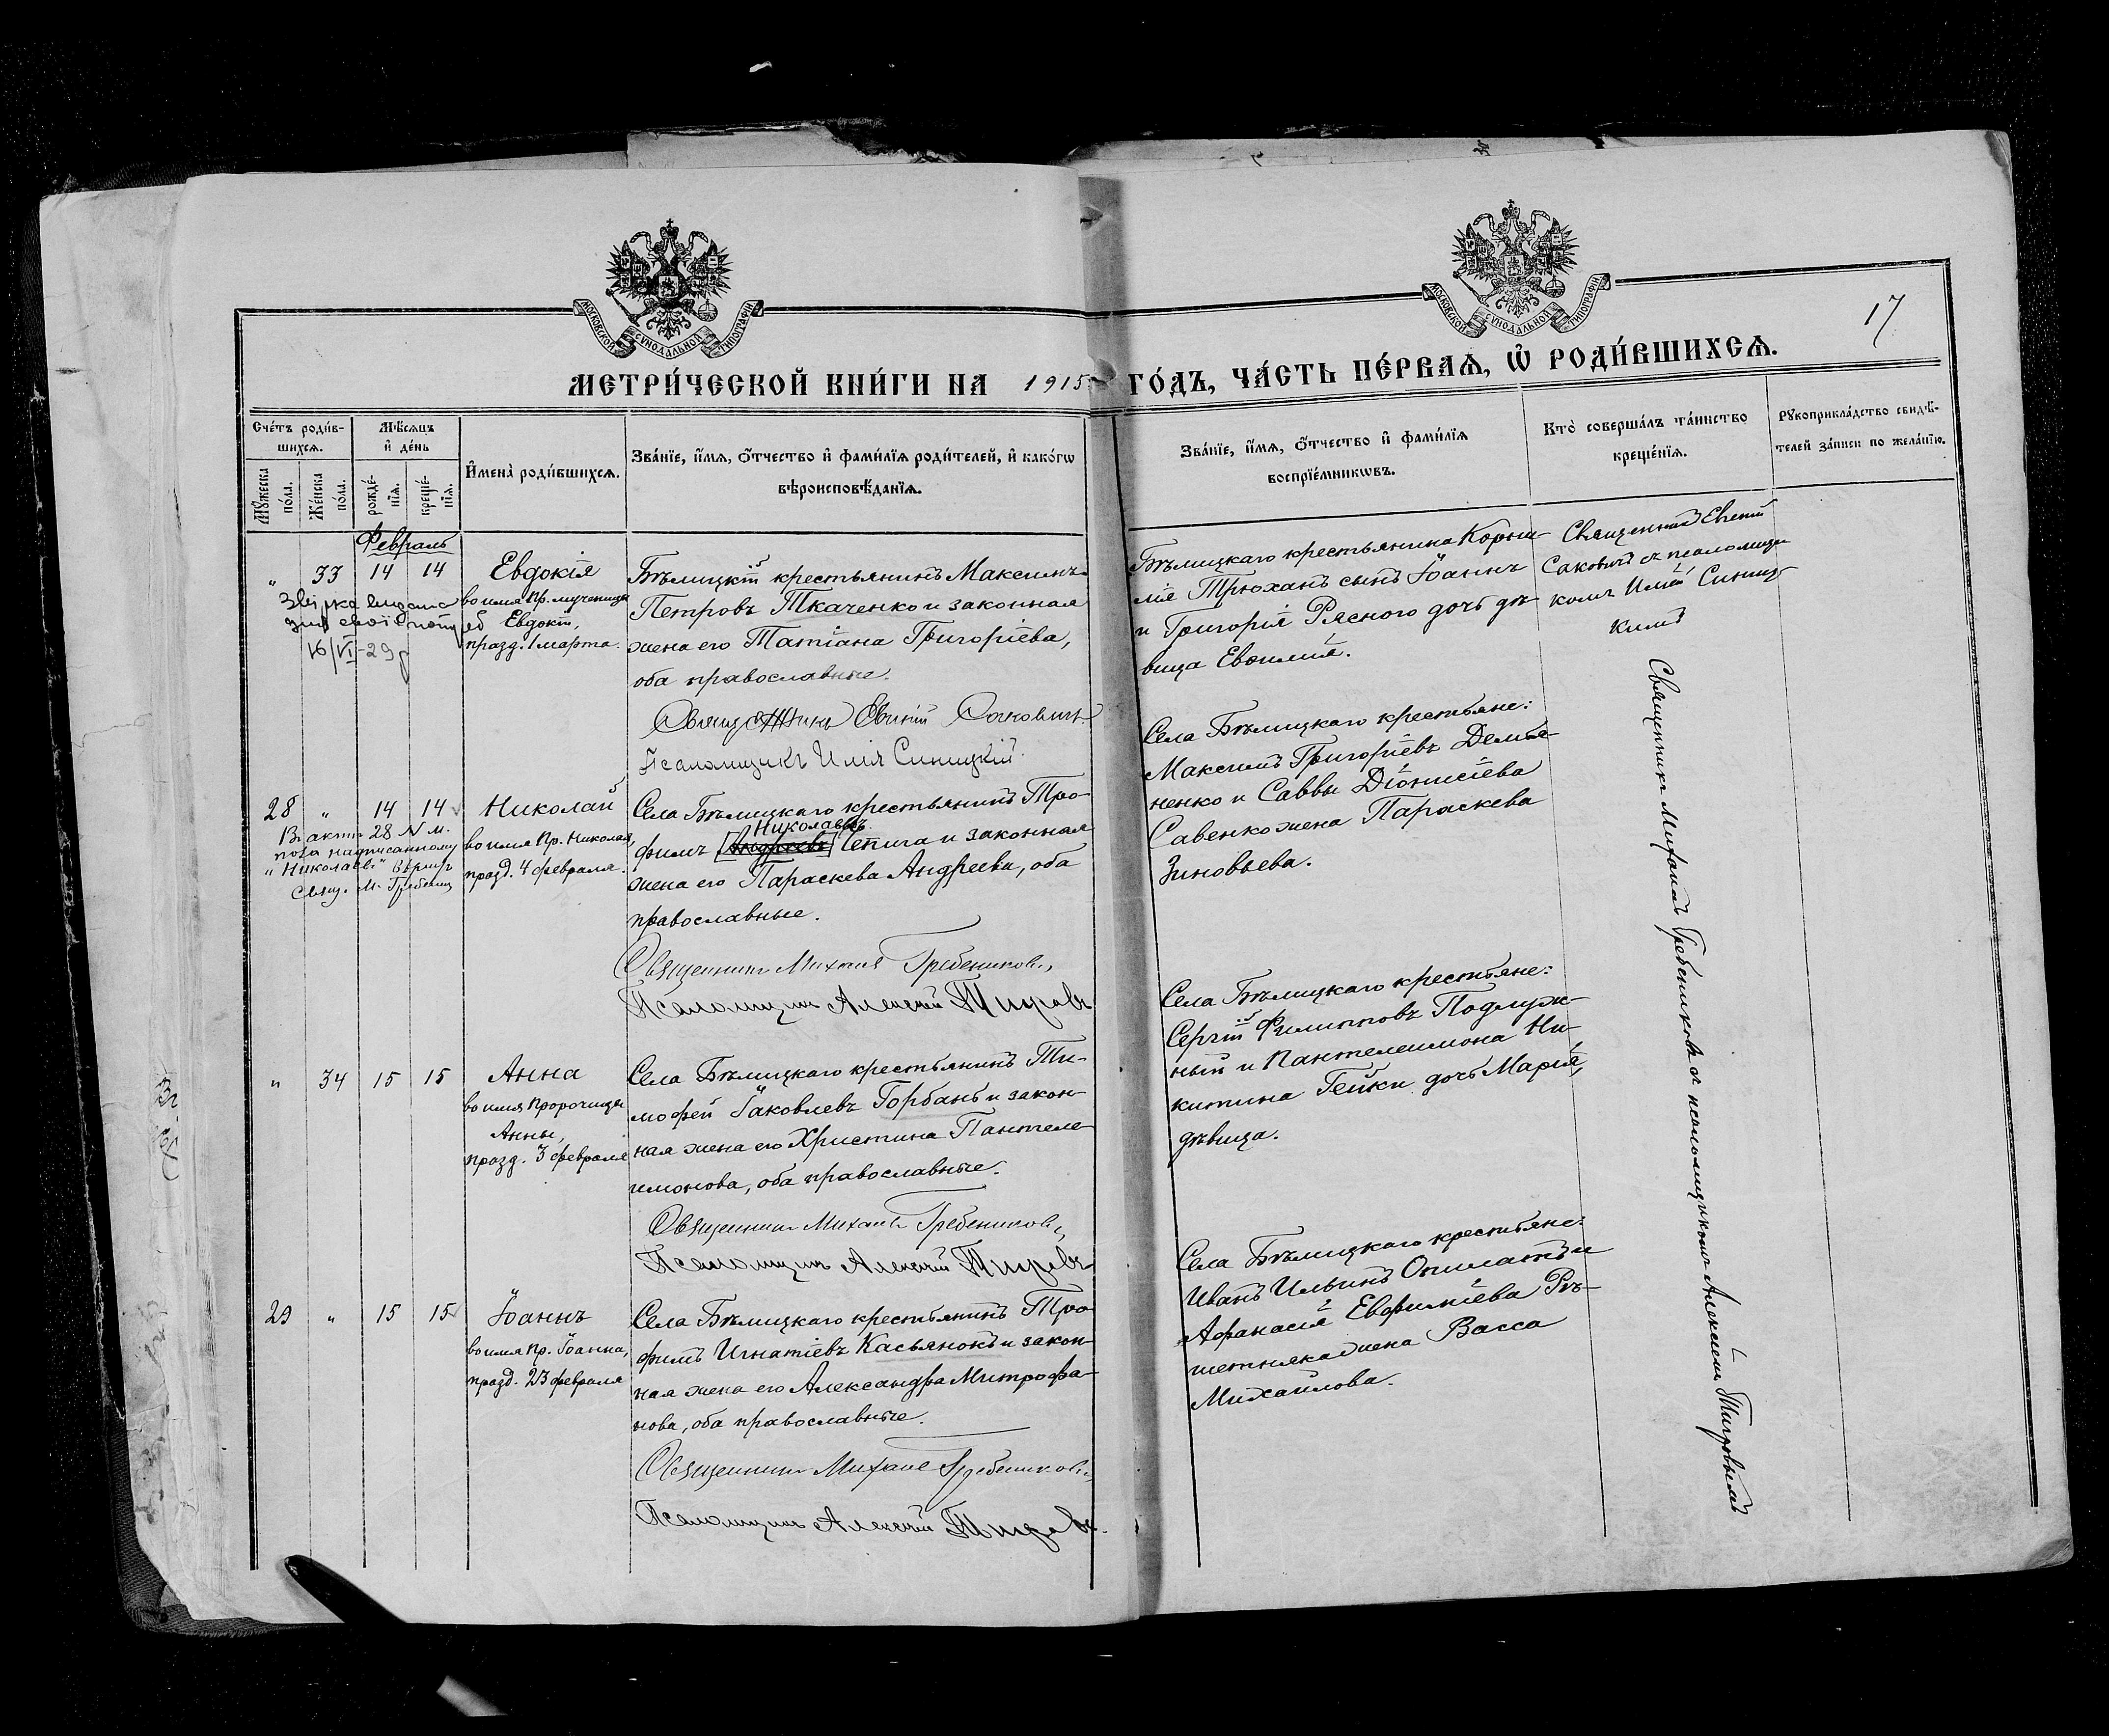 МОСКОВСКОЙ СУНОДАЛЬНОЙ ТИПОГРАФІИ
МОСКОВСКОЙ СУНОДАЛЬНОЙ ТИПОГРАФІИ
17
МЕТРИ́ЧЕСКОЙ КНИ́ГИ НА 1915 ГО́ДЪ, ЧА́СТЬ ПЕ́РВАѦ, Ѽ РОДИ́ВШИХСѦ.
Сче́тъ роди́в-
шихсѧ.
Мꙋжеска по́ла.
Же́нска по́ла.
Мѣ́сѧцъ
и҆ де́нь
рожде́-
нїѧ.
креще́-
нїѧ.
И҆мена̀ роди́вшихсѧ.
Зва́нїе, и҆́мѧ, ѻ҆́тчество и҆ фами́лїѧ роди́телей, и҆ како́гѡ
вѣроисповѣ́данїѧ.
Зва́нїе, и҆́мѧ, ѻ҆́тчество и҆ фами́лїѧ
воспрїе́мникѡвъ.
Кто̀ соверша́лъ та́инство
креще́нїѧ.
Рꙋкоприкла́дство свидѣ́-
телей за́писи по жела́нїю.
Февраль
" 33 14 14
Евдокія
во имя пр. мученицы
Евдокіи,
празд. 1 марта.
16/VI-29 р
Бѣлицкій крестьянинъ Максимъ
Петровъ Ткаченко и законная
жена его Татіана Григоріева,
оба православные.
Священникъ Евгеній Саковичъ
Псаломщикъ Илія Синицкій.
Бѣлицкаго крестьянина Корни-
лія Трюханъ сынъ Іоаннъ
и Григорія Рясного дочь дѣ-
вица Евфимія.
Священникъ Евгеній
Саковичъ съ псаломщи-
комъ Иліей Синиц-
кимъ
28 " 14 14
Въ актѣ 28 N м.
пола надписанному
"Николаевъ" вѣрить
Свящ. М. Гребени
Николай
во имя Пр. Николая,
празд. 4 февраля.
Села Бѣлицкаго крестьянинъ Тро-
Николаевъ
фимъ Андреевъ Чепига и законная
жена его Параскева Андреева, оба
православные.
Священникъ Михаилъ Гребениковъ,
Псаломщикъ Алексій Тигровъ
Села Бѣлицкаго крестьяне:
Максимъ Григоріевъ Демья-
ненко и Саввы Діонисіева
Савенко жена Параскева
Зиновьева.
" 34 15 15
Анна
во имя Пророчицы
Анны,
празд. 3 февраля
Села Бѣлицкаго крестьянинъ Ти-
мофей Іаковлевъ Горбань и закон-
ная жена его Христина Пантеле-
имонова, оба православные.
Священникъ Михаилъ Гребениковъ,
Псаломщикъ Алексій Тигровъ
Села Бѣлицкаго крестьяне:
Сергій Филипповъ Подлуж-
ный и Пантелеимона Ни-
китина Гейки дочь Марія,
дѣвица.
29 " 15 15
Іоаннъ
во имя Пр. Іоанна,
празд. 23 февраля
Села Бѣлицкаго крестьянинъ Тро-
фимъ Игнатіевъ Касьянокъ и закон-
ная жена его Александра Митрофа-
нова, оба православные.
Священникъ Михаилъ Гребениковъ,
Псаломщикъ Алексій Тигровъ.
Села Бѣлицкаго крестьяне:
Иванъ Ильинъ Опишатъ и
Афанасія Евфиміева Рѣ-
шетняка жена Васса
Михайлова.
Священникъ Михаилъ Гребениковъ съ псаломщикомъ Алексіемъ Тигровымъ